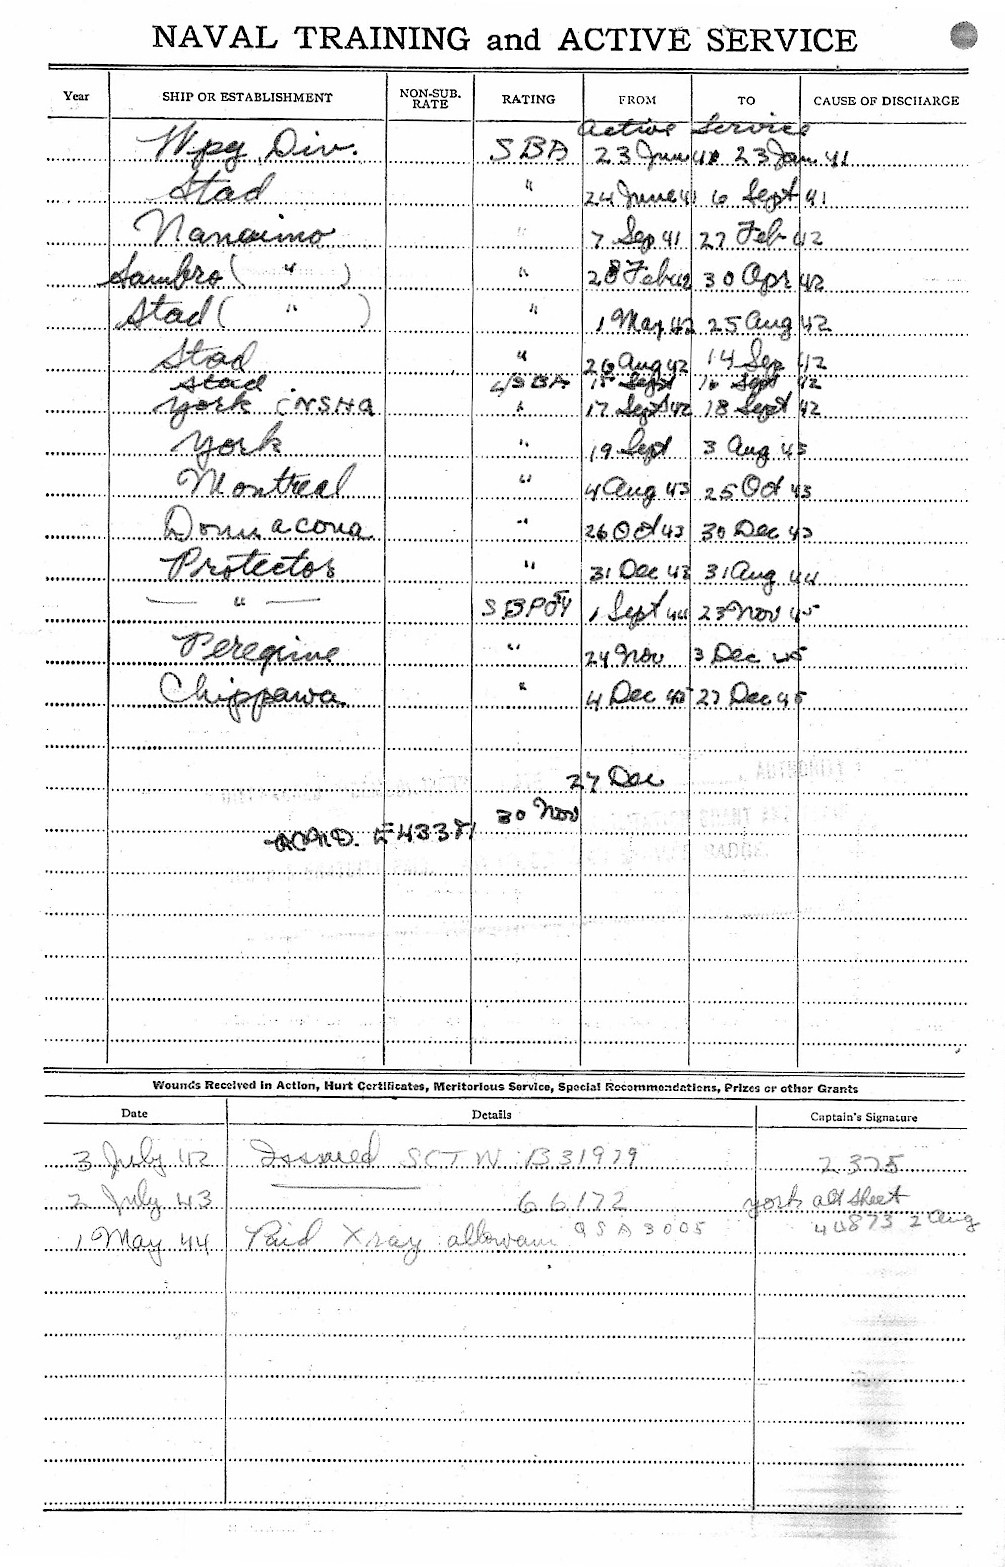 NAVAL TRAINING and ACTIVE SERVICE
Year SHIP OR ESTABLISHMENT NON-SUB. RATE RATING FROM TO CAUSE OF DISCHARGE
Active Service
Wpg Div. SBA 23 June 41 23 Jan 41
Stad " 24 June 41 6 Sept 41
Nanaimo " 7 Sep 41 27 Feb 42
Sambro ( " ) " 28 Feb 42 30 Apr 42
Stad ( " ) " 1 May 42 25 Aug 42
Stad " 26 Aug 42 14 Sep 42
Stad. L/SBA 15 Sept 16 Sept 42
York (NSHQ " 17 Sept 42 18 Sept 42
York " 19 Sept 3 Aug 43
Montreal " 4 Aug 43 25 Oct 43
Donnacona " 26 Oct 43 30 Dec 43
Protector " 31 Dec 43 31 Aug 44
— " — SBPOTY 1 Sept 44 23 Nov 45
Peregrine " 24 Nov 3 Dec 45
Chippawa " 4 Dec 45 27 Dec 45
27 Dec
30 Nov
E 43381
Wounds Received in Action, Hurt Certificates, Meritorious Service, Special Recommendations, Prizes or other Grants
Date Details Captain's Signature
3 July 42 Issued SCTW B31979 2375
2 July 43 —— 66172 York alt sheet
44873 2 Aug
1 May 44 Paid Xray allowanc QSA 3005